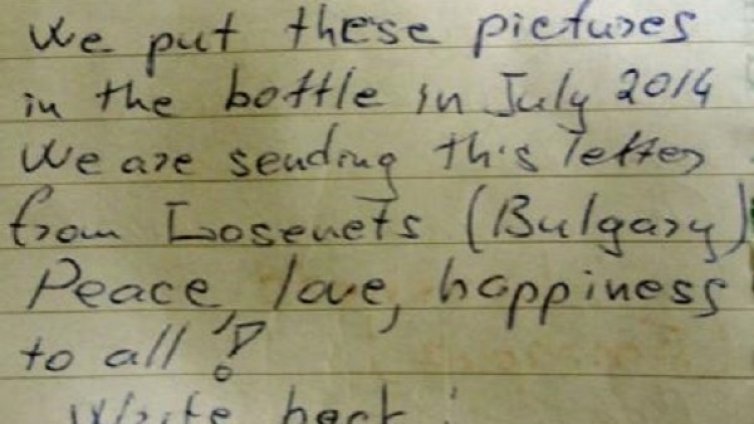 We put these pictures
in the bottle in July 2014
We are sending this letter
from Losenets (Bulgary)
Peace, love, happiness
to all!
Write back!